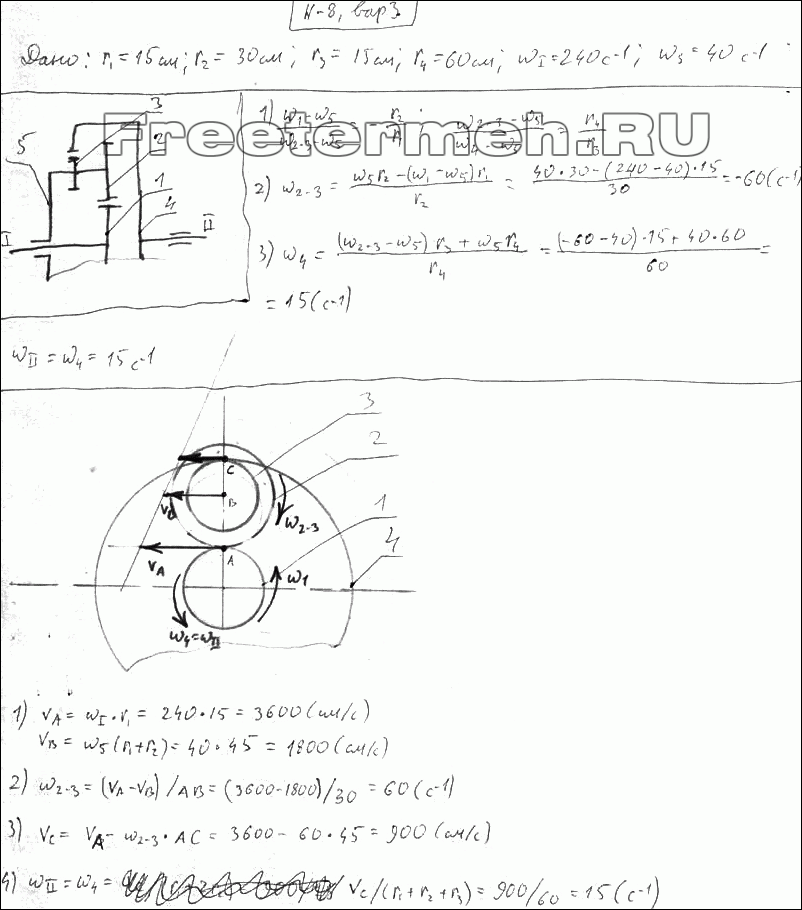 К-8, вар 3
Дано: r₁ = 15 см; r₂ = 30 см; r₃ = 15 см; r₄ = 60 см; ω_I = 240 с⁻¹; ω₅ = 40 с⁻¹
Freetermen.RU
3
2
5
1
4
I
II
1) (ω₁ - ω₅)/(ω₂₋₃ - ω₅) = - r₂/r₁ ; (ω₂₋₃ - ω₅)/(ω₄ - ω₅) = r₄/r₃
2) ω₂₋₃ = (ω₅r₂ - (ω₁ - ω₅)r₁)/r₂ = (40·30 - (240 - 40)·15)/30 = -60 (с⁻¹)
3) ω₄ = ((ω₂₋₃ - ω₅)r₃ + ω₅r₄)/r₄ = ((-60 - 40)·15 + 40·60)/60 =
= 15 (с⁻¹)
ω_II = ω₄ = 15 с⁻¹
3
2
1
4
C
B
V_B
ω₂₋₃
A
V_A
ω1
ω₄ = ω_II
1) V_A = ω_I · r₁ = 240·15 = 3600 (см/с)
V_B = ω₅(r₁ + r₂) = 40·45 = 1800 (см/с)
2) ω₂₋₃ = (V_A - V_B)/AB = (3600 - 1800)/30 = 60 (с⁻¹)
3) V_C = V_A - ω₂₋₃ · AC = 3600 - 60·45 = 900 (см/с)
4) ω_II = ω₄ = V_C/(r₁ + r₂ + r₃) = 900/60 = 15 (с⁻¹)